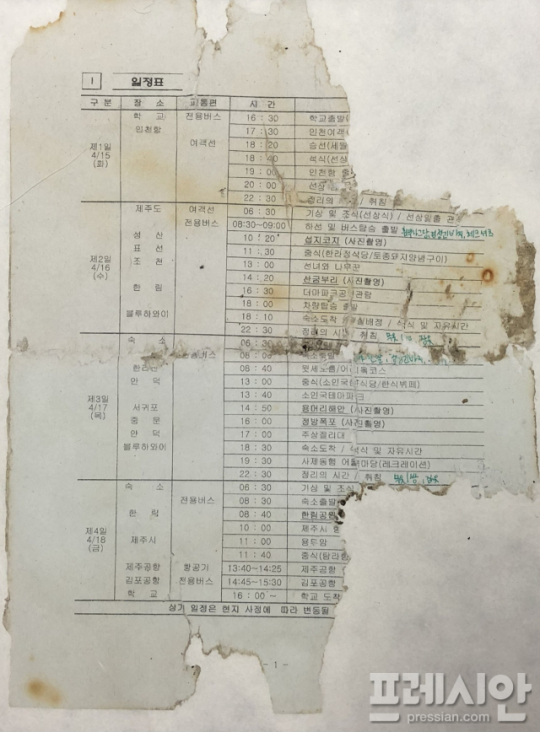 I 일정표
구 분 장 소 교통편 시 간
제1일 4/15 (화)
학 교 전용버스 16 : 30 학교출발
인천항 17 : 30 인천여객
여객선 18 : 20 승선(세월
18 : 40 석식(선상
19 : 00 인천항 출
20 : 00 선상
22 : 30 정리의 시간 / 취침
제2일 4/16 (수)
제주도 여객선 06 : 30 기상 및 조식(선상식) / 선상일출 관
전용버스 08:30~09:00 하선 및 버스탑승 출발
성 산 10 : 20 섭지코지 (사진촬영)
표 선 11 : 30 중식(한라정식당/토종돼지양념구이)
조 천 13 : 00 선녀와 나무꾼
14 : 20 산굼부리 (사진촬영)
한 림 16 : 30 더마파크공연관람
18 : 00 차량탑승 출발
블루하와이 18 : 10 숙소도착 / 객실배정 / 석식 및 자유시간
22 : 30 정리의 시간 / 취침
제3일 4/17 (목)
숙 소 06 : 30
전용버스 08 : 00 숙소출발
한라산 08 : 40
안 덕 13 : 00 중식(소인국식당/한식뷔페)
13 : 40 소인국테마파크
서귀포 14 : 50 용머리해안 (사진촬영)
중 문 16 : 00 정방폭포 (사진촬영)
안 덕 17 : 00 주상절리대
블루하와이 18 : 30 숙소도착 / 석식 및 자유시간
19 : 30 사제동행 어울마당(레크레이션)
22 : 30 정리의 시간 / 취침
제4일 4/18 (금)
숙 소 06 : 30 기상 및 조식
전용버스 08 : 30 숙소출발
한 림 08 : 40 한림공원
10 : 00 제주시
제주시 11 : 00 용두암
11 : 40 중식(탐라
제주공항 항공기 13:40~14:25 제주공항
김포공항 전용버스 14:45~15:30 김포공항
학 교 16 : 00 ~ 학교 도착
상기 일정은 현지 사정에 따라 변동될
- 1 -
프레시안
pressian.com